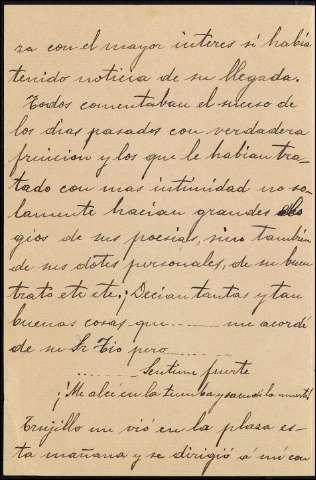 ra con el mayor interes si habia
tenido noticia de su llegada.
Todos comentaban el suceso de
los dias pasados con verdadera
fruicion y los que le habian tra-
tado con mas intimidad no so-
lamente hacian grandes elo
gios de sus poesias, sino tambien
de sus dotes personales, de su buen
trato etc etc. ¡Decian tantas y tan
buenas cosas que ........ me acordé
de su Sr Tio pero ........
........ Sentime fuerte
¡Me alcé en la tumba y sacudí la muerte!
Trujillo me vió en la plaza es-
ta mañana y se dirigió á mí con